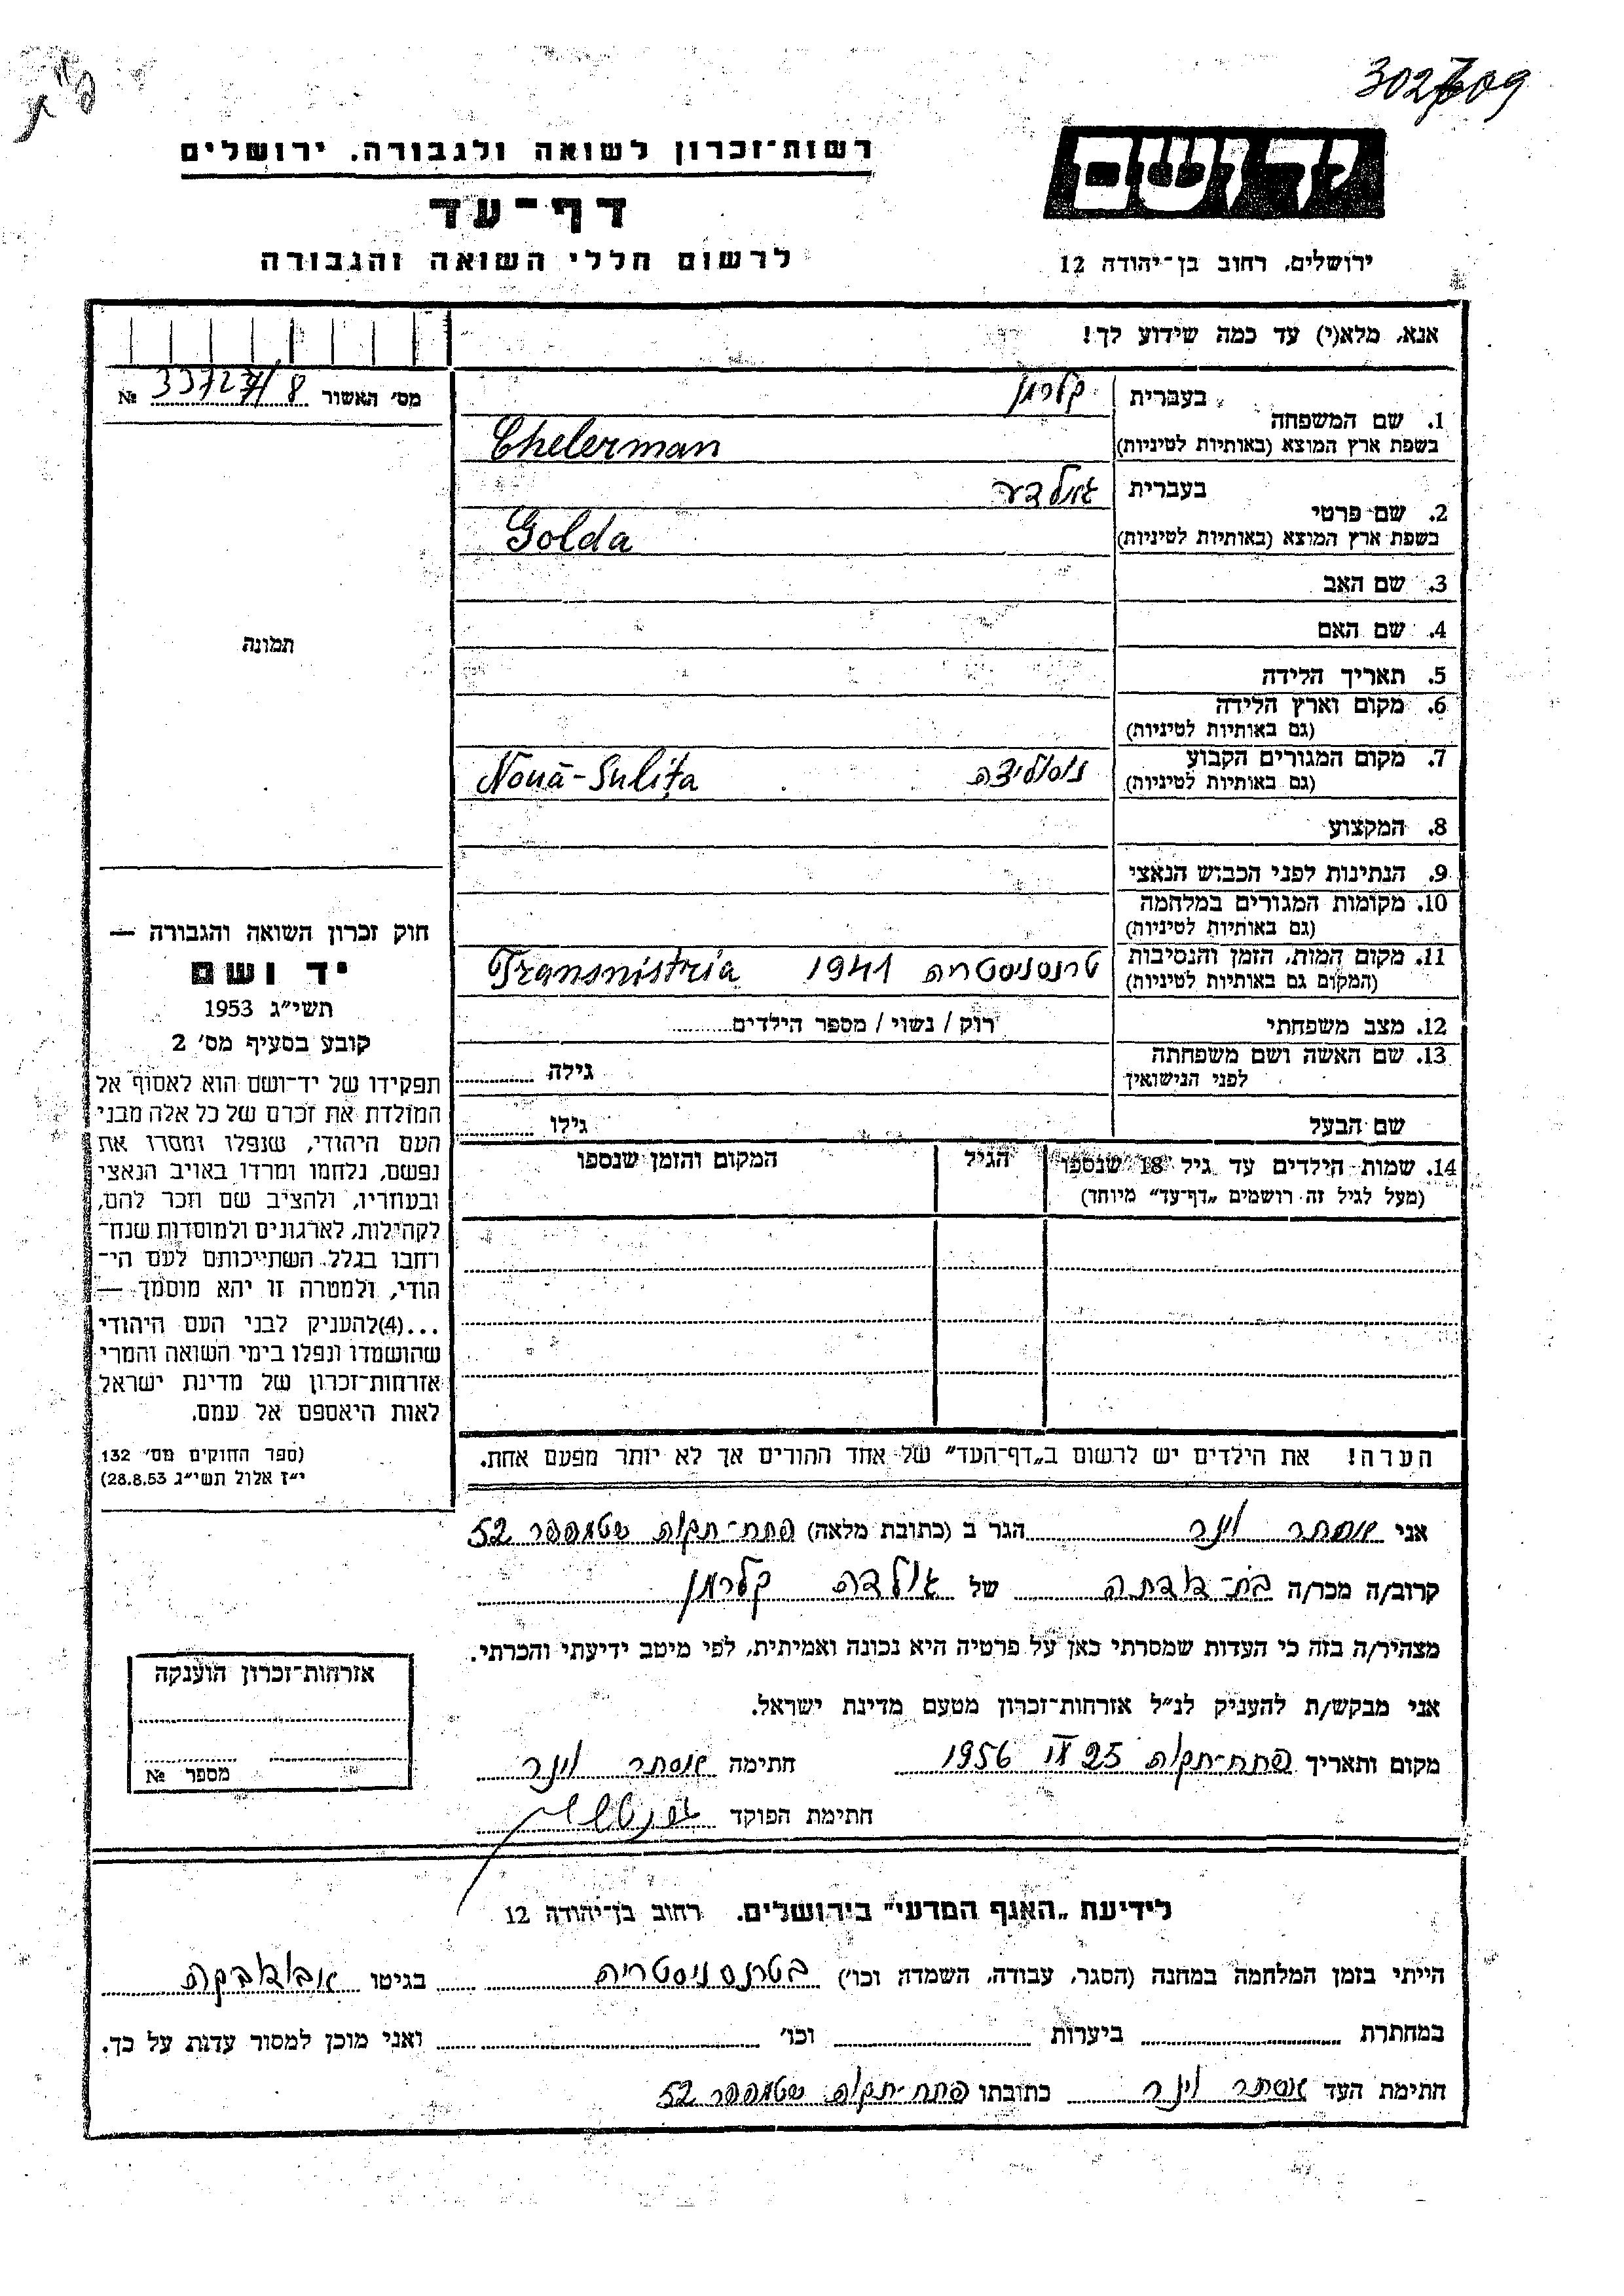 302709
רשות־זכרון לשואה ולגבורה, ירושלים
יד ושם
דף־עד
לרשום חללי השואה והגבורה
ירושלים, רחוב בן־יהודה 12
אנא, מלא(י) עד כמה שידוע לך!
מס׳ האשור 33727/8 №
בעברית קלרמן
1. שם המשפחה
בשפת ארץ המוצא (באותיות לטיניות) Chelerman
בעברית גולדה
2. שם פרטי
בשפת ארץ המוצא (באותיות לטיניות) Golda
3. שם האב
4. שם האם
תמונה
5. תאריך הלידה
6. מקום וארץ הלידה
(גם באותיות לטיניות)
7. מקום המגורים הקבוע נוסוליצה Nouă-Suliţa
(גם באותיות לטיניות)
8. המקצוע
9. הנתינות לפני הכבוש הנאצי
10. מקומות המגורים במלחמה
(גם באותיות לטיניות)
11. מקום המות, הזמן והנסיבות טרנסניסטריה 1941 Transnistria
(המקום גם באותיות לטיניות)
12. מצב משפחתי רוק / נשוי / מספר הילדים
13. שם האשה ושם משפחתה
לפני הנישואין גילה
שם הבעל גילו
14. שמות הילדים עד גיל 18 שנספו הגיל המקום והזמן שנספו
(מעל לגיל זה רושמים „דף־עד״ מיוחד)
חוק זכרון השואה והגבורה —
יד ושם
תשי״ג 1953
קובע בסעיף מס׳ 2
תפקידו של יד־ושם הוא לאסוף אל
המולדת את זכרם של כל אלה מבני
העם היהודי, שנפלו ומסרו את
נפשם, נלחמו ומרדו באויב הנאצי
ובעוזריו, ולהציב שם וזכר להם,
לקהילות, לארגונים ולמוסדות שנח־
רבו בגלל השתייכותם לעם הי־
הודי, ולמטרה זו יהא מוסמך —
...(4)להעניק לבני העם היהודי
שהושמדו ונפלו בימי השואה והמרי
אזרחות־זכרון של מדינת ישראל
לאות היאספם אל עמם.
(ספר החוקים מס׳ 132
י״ז אלול תשי״ג 28.8.53)
הערה! את הילדים יש לרשום ב„דף־העד״ של אחד ההורים אך לא יותר מפעם אחת.
אני אסתר וינר הגר ב (כתובת מלאה) פתח־תקוה שטמפפר 52
קרוב/ה מכר/ה בת־דודתה של גולדה קלרמן
מצהיר/ה בזה כי העדות שמסרתי כאן על פרטיה היא נכונה ואמיתית, לפי מיטב ידיעתי והכרתי.
אני מבקש/ת להעניק לנ״ל אזרחות־זכרון מטעם מדינת ישראל.
מקום ותאריך פתח־תקוה 25 IX 1956 חתימה אסתר וינר
חתימת הפוקד
אזרחות־זכרון הוענקה
מספר №
לידיעת „האגף המדעי״ בירושלים, רחוב בן־יהודה 12
הייתי בזמן המלחמה במחנה (הסגר, עבודה, השמדה וכו׳) בטרנסניסטריה בגיטו אובודובקה
במחתרת ביערות וכו׳ ואני מוכן למסור עדות על כך.
חתימת העד אסתר וינר כתובתו פתח־תקוה שטמפפר 52